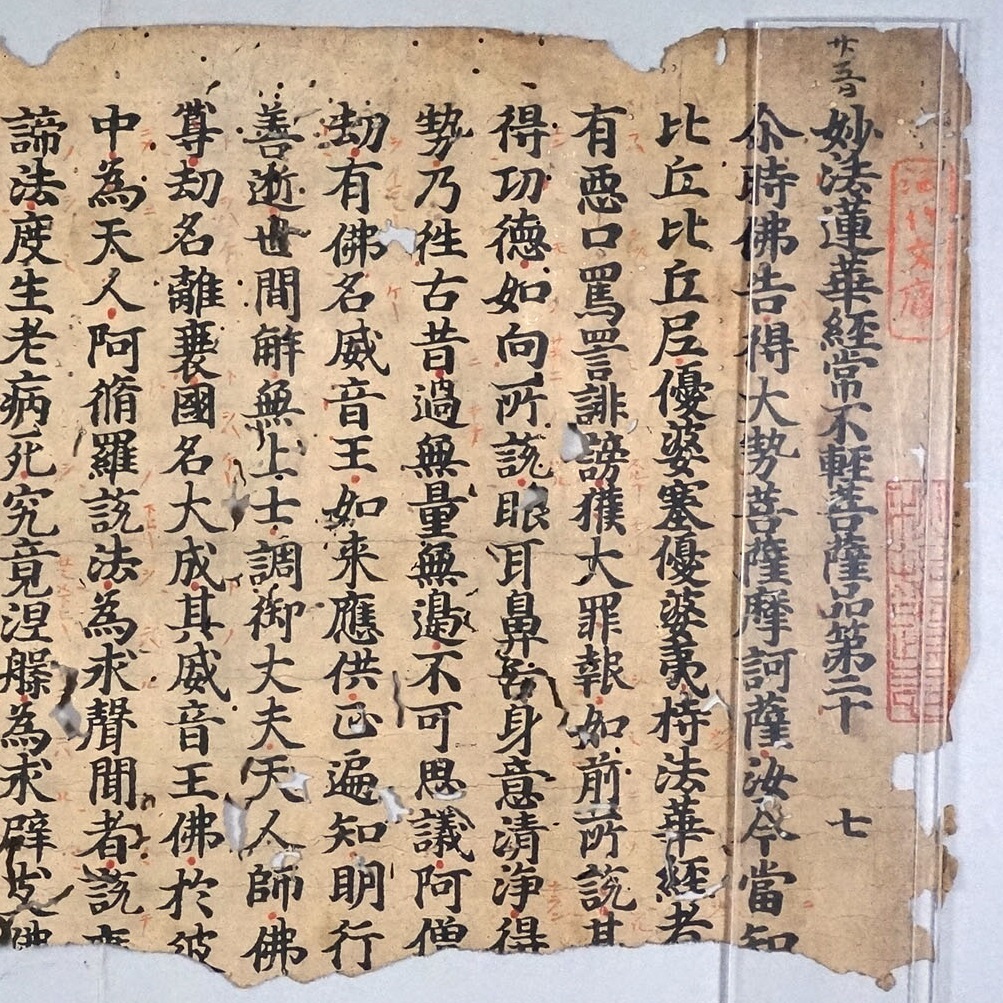 廿五百
妙法蓮華經常不軽菩薩品第二十 七
尒時佛告得大勢菩薩摩訶薩汝今當知
比丘比丘尼優婆塞優婆夷持法華經者
有惡口罵詈誹謗獲大罪報如前所說其
得功德如向所說眼耳鼻舌身意清淨得
勢乃往古昔過無量無邊不可思議阿僧
劫有佛名威音王如来應供正遍知明行
善逝世間解無上士調御丈夫天人師佛
尊劫名離衰國名大成其威音王佛於彼
中為天人阿脩羅說法為求聲聞者說應
諦法度生老病死究竟涅槃為求辟支佛